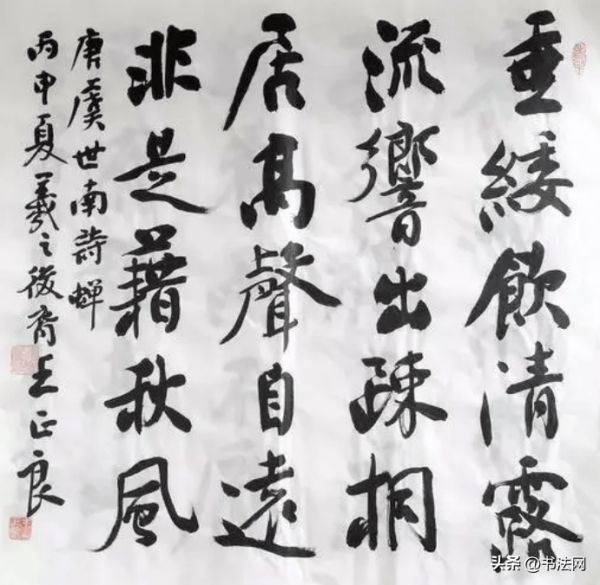 垂緌飲清露
流響出疎桐
居高聲自遠
非是藉秋風
唐虞世南詩蟬
丙申夏羲之後裔王正良
头条@书法网